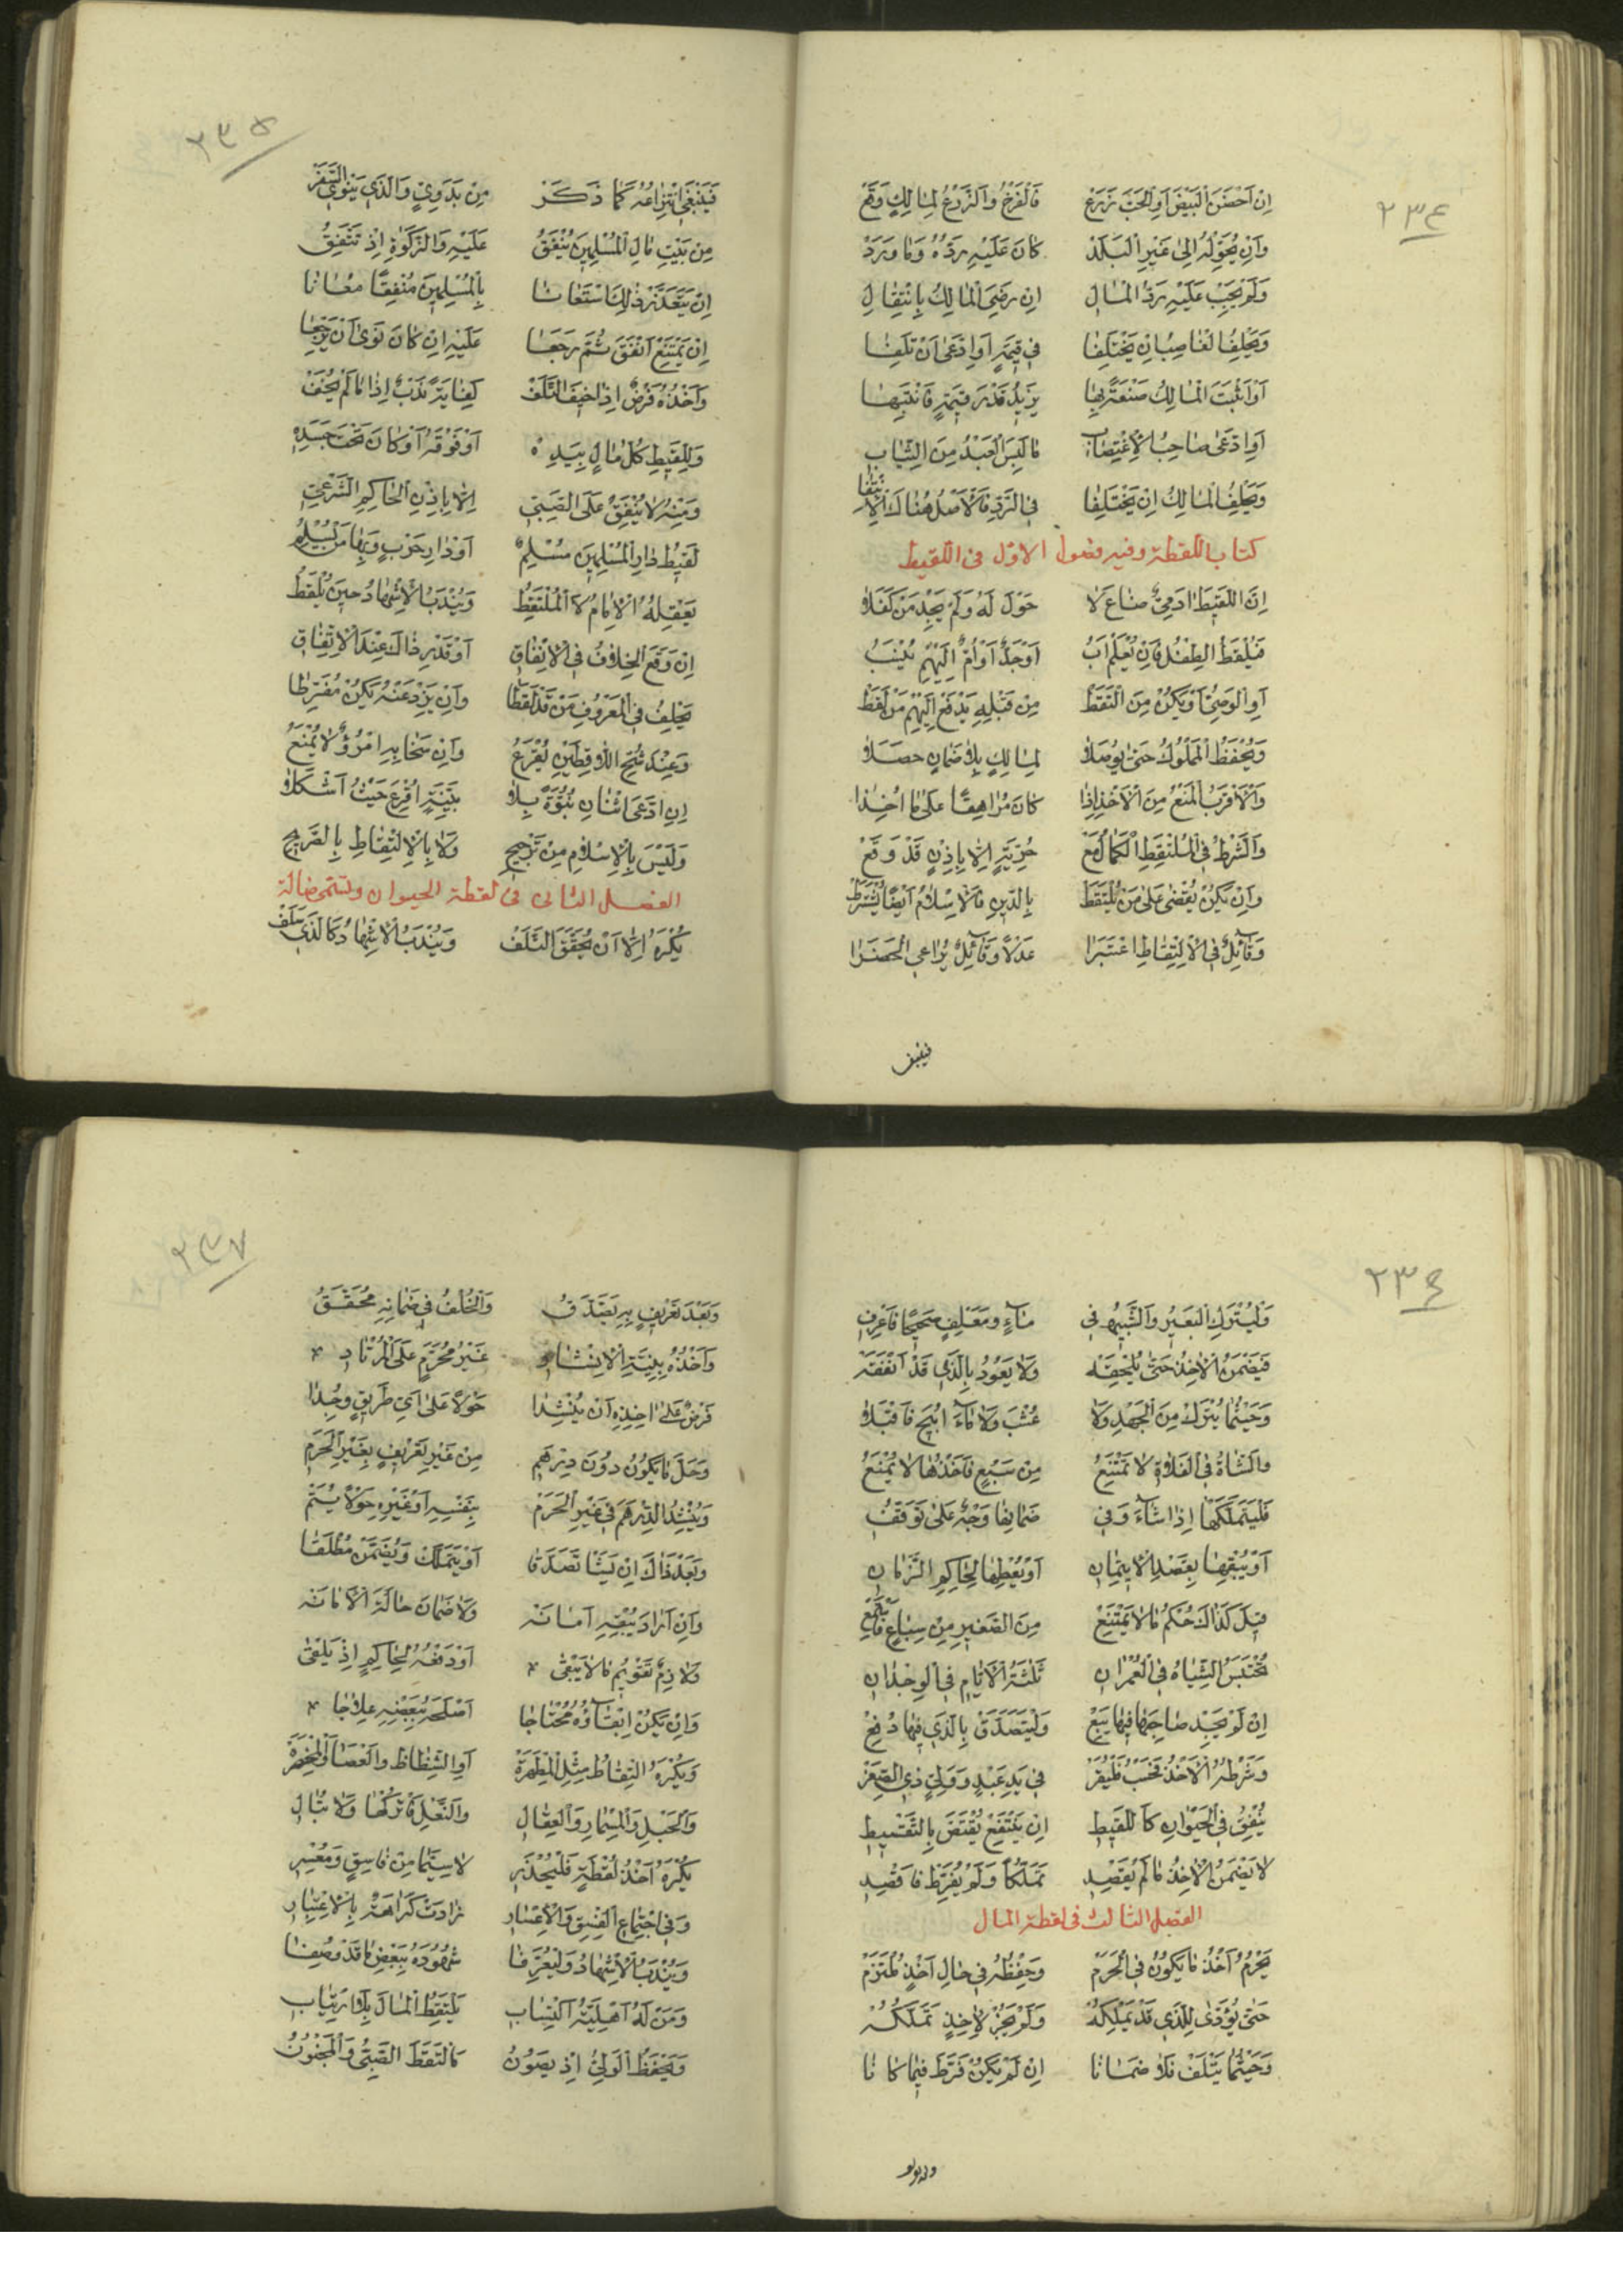 ٢٣٤
اِنْ اَحْضَنَ الْبَيْضَ اَوِ الْحَبَّ زَرَعَ فَالْفَرْخُ وَالزَّرْعُ لِمَالِكٍ وَقَعْ
وَاِنْ يُحَوِّلْهُ اِلٰى غَيْرِ الْبَلَدْ كَانَ عَلَيْهِ رَدُّهُ وَمَا وَرَدْ
وَلَمْ يَجِبْ عَلَيْهِ رَدُّ الْمَالِ اِنْ رَضِيَ الْمَالِكُ بِانْتِقَالِ
وَيَحْلِفُ الْغَاصِبُ اِنْ يَخْتَلِفَا فِي قِيمَةٍ اَوِ ادَّعٰى اَنْ تَلِفَا
اَوْ اَثْبَتَ الْمَالِكُ صَنْعَةً بِهَا يَزِيدُ قَدْرَ قِيمَةٍ فَانْتَبِهَا
اَوِ ادَّعٰى صَاحِبُ الْاِغْتِصَابِ مَا لَبِسَ الْعَبْدُ مِنَ الثِّيَابِ
وَيَحْلِفُ الْمَالِكُ اِنْ يَخْتَلِفَا فِي الرَّدِّ فَالْاَصْلُ هُنَاكَ الْاِنْتِفَا
كتاب اللقطة وفيه فصول الاول فى اللقيط
اِنَّ اللَّقِيطَ اٰدَمِيٌّ ضَاعَ لَا حَوْلَ لَهُ وَلَمْ يَجِدْ مَنْ كَفَلَا
فَيُلْقَطُ الطِّفْلُ فَاِنْ يُعْلَمْ اَبُ اَوْ جَدٌّ اَوْ اُمٌّ اِلَيْهِمْ يُنْسَبُ
اَوِ الْوَصِيُّ اَوْ يَكُنْ مَنِ الْتَقَطْ مِنْ قَبْلِهِ يَدْفَعْ اِلَيْهِمْ مَنْ لَقَطْ
وَيُحْفَظُ الْمَمْلُوكُ حَتّٰى يُوصَلَا لِمَالِكٍ بِلَا ضَمَانٍ حَصَلَا
وَالْاَقْرَبُ الْمَنْعُ مِنَ الْاَخْذِ اِذَا كَانَ مُرَاهِقًا عَلٰى مَا اُخِذَا
وَالشَّرْطُ فِي الْمُلْتَقِطِ الْكَمَالُ مَعْ حُرِّيَّةٍ اِلَّا بِاِذْنٍ قَدْ وَقَعْ
وَاِنْ يَكُنْ يُقْضٰى عَلٰى مَنْ يُلْتَقَطْ بِالدِّينِ فَالْاِسْلَامُ اَيْضًا يُشْتَرَطْ
وَقَائِلٌ فِي الْاِلْتِقَاطِ اعْتَبَرَا عَدْلًا وَقَائِلٌ يُرَاعِي الْحَضَرَا
فينبغى
٢٣٥
فَيَنْبَغِي انْتِزَاعُهُ كَمَا ذَكَرْ مِنْ بَدَوِيٍّ وَالَّذِي يَنْوِي السَّفَرْ
مِنْ بَيْتِ مَالِ الْمُسْلِمِينَ يُنْفَقُ عَلَيْهِ وَالزَّكٰوةِ اِذْ تَتَّفِقُ
اِنْ يَتَعَذَّرْ ذٰلِكَ اسْتَعَانَا بِالْمُسْلِمِينَ مُنْفِقًا مُعَانَا
اِنْ يَمْتَنِعْ اَنْفَقَ ثُمَّ رَجَعَا عَلَيْهِ اِنْ كَانَ نَوٰى اَنْ يَرْجِعَا
وَاَخْذُهُ فَرْضٌ اِذَا خِيفَ التَّلَفْ كِفَايَةً نَدْبٌ اِذَا مَا لَمْ يُخَفْ
وَلِلَّقِيطِ كُلُّ مَالٍ بِيَدِهْ اَوْ فَوْقَهُ اَوْ كَانَ تَحْتَ جَسَدِهْ
وَمِنْهُ لَا يُنْفَقْ عَلَى الصَّبِيِّ اِلَّا بِاِذْنِ الْحَاكِمِ الشَّرْعِيِّ
لَقِيطُ دَارِ الْمُسْلِمِينَ مُسْلِمُ اَوْ دَارِ حَرْبٍ وَبِهَا مَنْ يُسْلِمُ
يَعْقِلُهُ الْاِمَامُ لَا الْمُلْتَقِطُ وَيُنْدَبُ الْاِشْهَادُ حِينَ يُلْقَطُ
اِنْ وَقَعَ الْخِلَافُ فِي الْاِنْفَاقِ اَوْ قَدْرِ ذَاكَ عِنْدَ الْاِتِّفَاقِ
يَحْلِفُ فِي الْمَعْرُوفِ مَنْ قَدْ لَقَطَا وَاِنْ يَزِدْ عَنْهُ يَكُنْ مُفَرِّطَا
وَعِنْدَ شُحِّ اللَّاقِطَيْنِ يُقْرَعُ وَاِنْ سَخَا بِهِ امْرُؤٌ لَا يُمْنَعُ
اِنِ ادَّعَى اثْنَانِ بُنُوَّةً بِلَا بَيِّنَةٍ اُقْرِعَ حَيْثُ اَشْكَلَا
وَلَيْسَ بِالْاِسْلَامِ مِنْ تَرْجِيحِ وَلَا بِالْاِلْتِقَاطِ بِالصَّرِيحِ
الفصل الثانى فى لقطة الحيوان وتسمى ضالة
يُكْرَهُ اِلَّا اَنْ يُحَقَّقَ التَّلَفْ وَيُنْدَبُ الْاِشْهَادُ كَالَّذِي سَلَفْ
٢٣٦
وَلْيُتْرَكِ الْبَعِيرُ وَالشَّبِيهُ فِي مَاءٍ وَمَعْلَفٍ صَحِيحًا فَاعْرِفِ
فَيَضْمَنُ الْاٰخِذُ حَتّٰى يُلْحِقَهْ وَلَا يَعُودُ بِالَّذِي قَدْ اَنْفَقَهْ
وَحَيْثُمَا يُتْرَكْ مِنَ الْجَهْدِ وَلَا عُشْبَ وَلَا مَاءَ اُبِيحَ فَاقْبَلَا
وَالشَّاةُ فِي الْفَلَاةِ لَا تَمْتَنِعُ مِنْ سَبُعٍ فَاَخْذُهَا لَا يُمْنَعُ
فَلْيَتَمَلَّكْهَا اِذَا شَاءَ وَفِي ضَمَانِهَا وَجْهٌ عَلٰى تَوَقُّفِ
اَوْ يُبْقِهَا بِقَصْدِ الْاِيتِمَانِ اَوْ يُعْطِهَا لِحَاكِمِ الزَّمَانِ
قِيلَ كَذَاكَ حُكْمُ مَا لَا يَمْتَنِعْ مِنَ الصَّغِيرِ مِنْ سِبَاعٍ
تُحْتَبَسُ الشِّيَاهُ فِي الْعُمْرَانِ ثَلٰثَةَ الْاَيَّامِ فِي الْوِجْدَانِ
اِنْ لَمْ يَجِدْ صَاحِبَهَا فِيهَا يَبِعْ وَلْيَتَصَدَّقْ بِالَّذِي فِيهَا دُفِعْ
وَشَرْطُهُ الْاَخْذُ فَحَسْبُ فَلْيُقَرْ فِي يَدِ عَبْدٍ وَوَلِيِّ ذِي الصِّغَرْ
يُنْفِقُ فِي الْحَيَوَانِ كَاللَّقِيطِ اِنْ يَنْتَفِعْ يُقْتَصَّ بِالتَّقْسِيطِ
لَا يَضْمَنُ الْاٰخِذُ مَا لَمْ يَقْصِدِ تَمَلُّكًا وَلَمْ يُفَرِّطْ فَاقْصِدِ
الفصل الثالث فى لقطة المال
يَحْرُمُ اَخْذُ مَا يَكُونُ فِي الْحَرَمْ وَحِفْظُهُ فِي حَالِ اَخْذٍ مُلْتَزَمْ
حَتّٰى يُؤَدّٰى لِلَّذِي قَدْ يَمْلِكُهْ وَلَمْ يَجُزْ لِاٰخِذٍ تَمَلُّكُهْ
وَحَيْثُمَا يَتْلَفْ فَلَا ضَمَانَا اِنْ لَمْ يَكُنْ فَرَّطَ فِيمَا كَانَا
٢٣٧
وَبَعْدَ تَعْرِيفٍ بِهِ يَصَّدَّقُ وَالْخُلْفُ فِي ضَمَانِهِ مُحَقَّقُ
وَاَخْذُهُ بِنِيَّةِ الْاِنْشَادِ غَيْرُ مُحَرَّمٍ عَلَى الْمُرْتَادِ
فَرْضٌ عَلٰى اٰخِذِهِ اَنْ يُنْشِدَا حَوْلًا عَلٰى اَيِّ طَرِيقٍ وُجِدَا
وَحَلَّ مَا يَكُونُ دُونَ دِرْهَمِ مِنْ غَيْرِ تَعْرِيفٍ بِغَيْرِ الْحَرَمِ
وَيُنْشِدُ الدِّرْهَمَ فِي غَيْرِ الْحَرَمْ بِنَفْسِهِ اَوْ غَيْرِهِ حَوْلًا يُتَمْ
وَبَعْدَ ذَاكَ اِنْ يَشَا تَصَدَّقَا اَوْ يَتَمَلَّكْ وَيُضَمَّنْ مُطْلَقَا
وَاِنْ اَرَادَ يُبْقِهِ اَمَانَهْ وَلَا ضَمَانَ حَالَةَ الْاَمَانَهْ
وَلَازِمٌ تَقْوِيمُ مَا لَا يَبْقٰى اَوْ دَفْعُهُ لِحَاكِمٍ اِذْ يَلْقٰى
وَاِنْ يَكُنْ اِبْقَاؤُهُ مُحْتَاجَا اَصْلَحَهُ بِبَعْضِهِ عِلَاجَا
وَيُكْرَهُ الْتِقَاطُ مِثْلِ الْمِطْهَرَةْ اَوِ الشِّظَاظِ وَالْعَصَا وَالْمِخْصَرَةْ
وَالْحَبْلِ وَالْمِسْمَارِ وَالْعِقَالِ وَالنَّعْلِ فَاتْرُكْهَا وَلَا تُبَالِ
يُكْرَهُ اَخْذُ لُقْطَةٍ فَلْيُحْذَرِ لَا سِيَّمَا مِنْ فَاسِقٍ وَمُعْسِرِ
وَفِي اجْتِمَاعِ الْفِسْقِ وَالْاِعْسَارِ زَادَتْ كَرَاهَةً بِالْاِعْتِبَارِ
وَيُنْدَبُ الْاِشْهَادُ وَلْيُعَرِّفَا شُهُودَهُ بِبَعْضِ مَا قَدْ وُصِفَا
وَمَنْ لَهُ اَهْلِيَّةُ اكْتِسَابِ يَلْتَقِطُ الْمَالَ بِلَا ارْتِيَابِ
وَيَحْفَظُ الْوَلِيُّ اِذْ يَصُونُ مَا الْتَقَطَ الصَّبِيُّ وَالْمَجْنُونُ